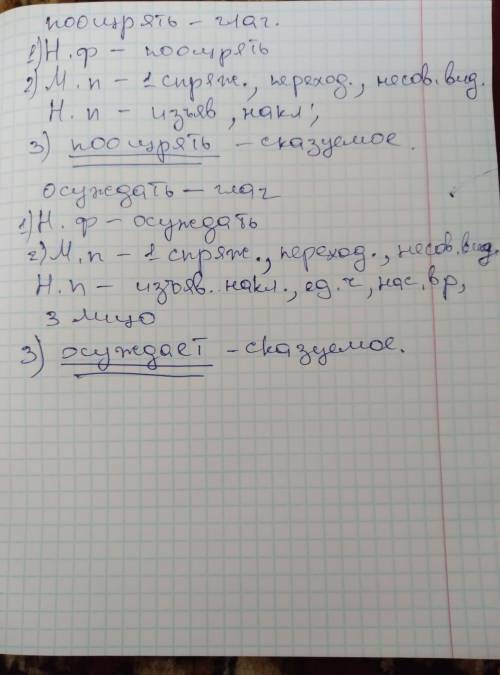 поощрять – глаг.
1) Н.ф – поощрять
2) М.п – 1 спряж., переход., несов. вид.
Н.п – изъяв, накл;
3) поощрять – сказуемое.
осуждать – глаг
1) Н.ф – осуждать
2) М.п – 1 спряж., переход., несов. вид.
Н.п – изъяв. накл., ед. ч, нас. вр,
3 лицо
3) осуждает – сказуемое.